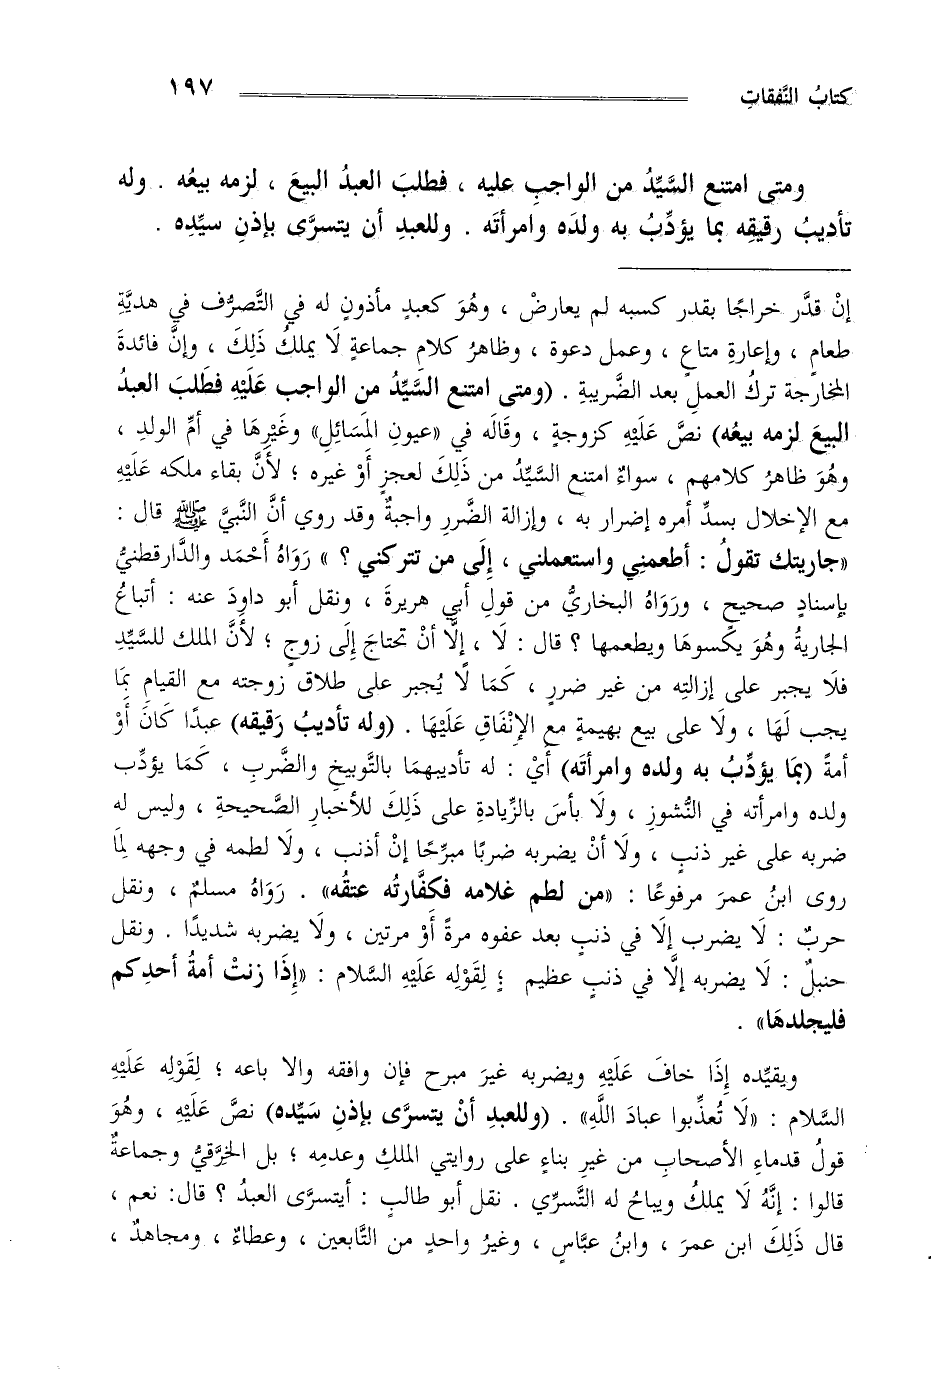 كتابُ النَّفقاتِ ١٩٧
ومتى امتنع السَّيِّدُ من الواجبِ عليه ، فطلبَ العبدُ البيعَ ، لزمه بيعُه . وله
تأديبُ رقيقِه بما يؤدِّبُ به ولدَه وامرأتَه . وللعبدِ أن يتسرَّى بإذنِ سيِّدِه .
إنْ قدَّر خراجًا بقدر كسبه لم يعارضْ ، وهُوَ كعبدٍ مأذونٍ له في التَّصرُّف في هديَّةِ
طعامٍ ، وإعارةِ متاعٍ ، وعمل دعوة ، وظاهرُ كلامِ جماعةٍ لَا يملكُ ذَلِكَ ، وإنَّ فائدةَ
المخارجة تركُ العملِ بعد الضَّريبةِ . (ومتى امتنع السَّيِّدُ من الواجب عَلَيْهِ فطَلبَ العبدُ
البيعَ لزمه بيعُه) نصَّ عَلَيْهِ كزوجةٍ ، وقالَه في «عيونِ المَسَائِلِ» وغَيْرِهَا في أمِّ الولدِ ،
وهُوَ ظاهرُ كلامهم ، سواءٌ امتنع السَّيِّدُ من ذَلِكَ لعجزٍ أَوْ غيره ؛ لأنَّ بقاء ملكه عَلَيْهِ
مع الإخلال بسدِّ أمره إضرار به ، وإزالة الضَّررِ واجبةٌ وقد روي أنَّ النَّبيَّ ﷺ قال :
«جاريتك تقولُ : أطعمنِي واستعملني ، إلَى من تتركني ؟ » رَوَاهُ أَحْمَد والدَّارقطنيُّ
بإسنادٍ صحيحٍ ، ورَوَاهُ البخاريُّ من قولِ أبي هريرةَ ، ونقل أبو داودَ عنه : أتباعُ
الجاريةُ وهُوَ يكسوهَا ويطعمها ؟ قال : لَا ، إلَّا أنْ تحتاجَ إلَى زوجٍ ؛ لأنَّ الملك للسَّيِّدِ
فلَا يجبر على إزالتِه من غير ضررٍ ، كَمَا لَا يُجبر على طلاق زوجته مع القيام بمَا
يجب لَهَا ، ولَا على بيع بهيمةٍ مع الإنْفَاقِ عَلَيْهَا . (وله تأديبُ رَقيقه) عبدًا كَانَ أَوْ
أمةً (بمَا يؤدِّبُ به ولده وامرأتَه) أيْ : له تأديبهمَا بالتَّوبيخِ والضَّربِ ، كَمَا يؤدِّب
ولده وامرأته في النُّشوزِ ، ولَا بأسَ بالزِّيادةِ على ذَلِكَ للأخبارِ الصَّحيحةِ ، وليس له
ضربه على غير ذنبٍ ، ولَا أنْ يضربه ضربًا مبرِّحًا إنْ أذنب ، ولَا لطمه في وجهه لمَا
روى ابنُ عمرَ مرفوعًا : «من لطم غلامه فكفَّارتُه عتقُه» . رَوَاهُ مسلمٌ ، ونقل
حربٌ : لَا يضرب إلَّا في ذنبٍ بعد عفوه مرةً أَوْ مرتين ، ولَا يضربه شديدًا . ونقل
حنبلٌ : لَا يضربه إلَّا في ذنبٍ عظيم ؛ لِقَوْلِه عَلَيْهِ السَّلام : «إِذَا زنتْ أمةُ أحدِكم
فليجلدهَا» .
ويقيِّده إذَا خافَ عَلَيْهِ ويضربه غيرَ مبرح فإن وافقه والا باعه ؛ لِقَوْلِه عَلَيْهِ
السَّلام : «لَا تُعذِّبوا عبادَ اللَّهِ» . (وللعبدِ أنْ يتسرَّى بإذنِ سَيِّده) نصَّ عَلَيْهِ ، وهُوَ
قولُ قدماءِ الأصحابِ من غيرِ بناءٍ على روايتي الملكِ وعدمِه ؛ بل الخِرَقيُّ وجماعةٌ
قالوا : إنَّهُ لَا يملكُ ويباحُ له التَّسرِّي . نقل أبو طالبٍ : أيتسرَّى العبدُ ؟ قال: نعم ،
قال ذَلِكَ ابن عمرَ ، وابنُ عبَّاسٍ ، وغيرُ واحدٍ من التَّابعين ، وعطاءٌ ، ومجاهدٌ ،